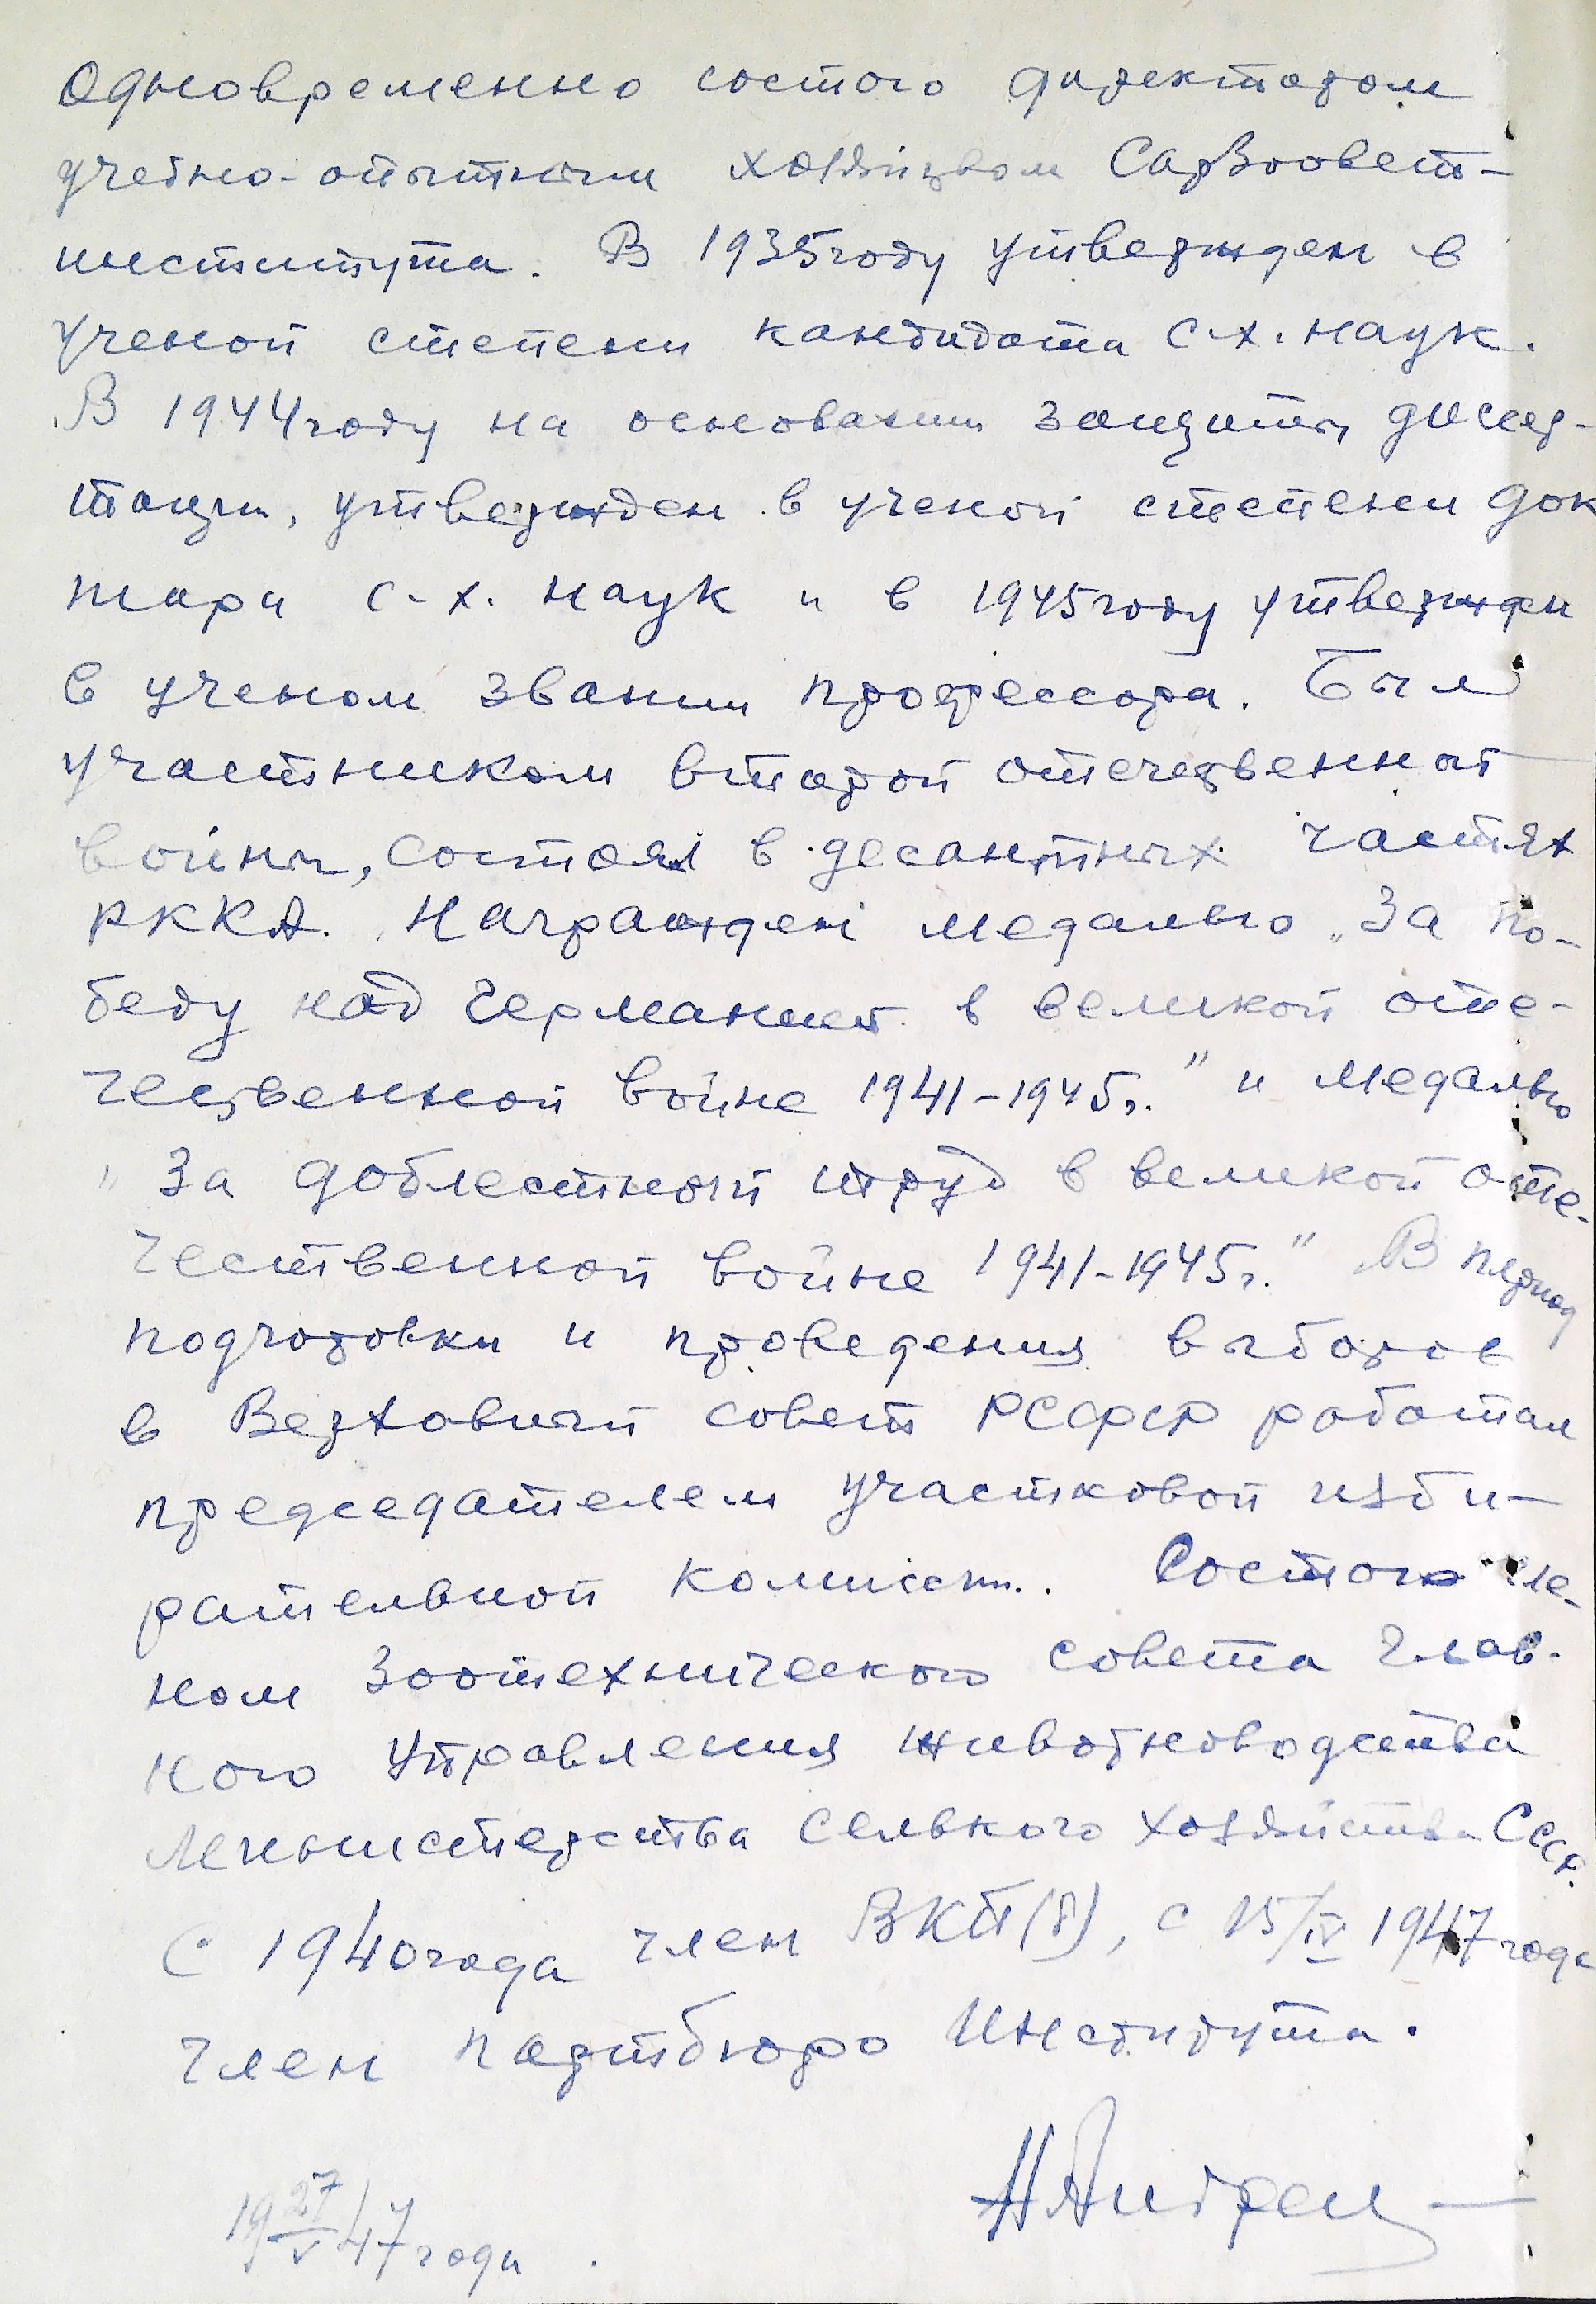 Одновременно состою директором
учебно-опытным хозяйством Сарзоовет-
института. В 1935 году утвержден в
ученой степени кандидата с-х. наук.
В 1944 году на основании защиты диссер-
тации, утвержден в ученой степени док
тора с-х. наук и в 1945 году утвержден
в ученом звании профессора. Был
участником второй отечественной
войны, состоял в десантных частях
РККА. Награжден медалью "За по-
беду над Германией в великой оте-
чественной войне 1941-1945г." и медалью
"За доблестный труд в великой оте-
чественной войне 1941-1945г." В период
подготовки и проведения выборов
в Верховный совет РСФСР работал
председателем участковой изби-
рательной комиссии. Состою чле-
ном зоотехнического совета Глав-
ного Управления животноводства
Министерства Сельского хозяйства СССР.
С 1940 года член ВКП(б), с 15/IV 1947 года
член партбюро Института.
19 27/V 47 года